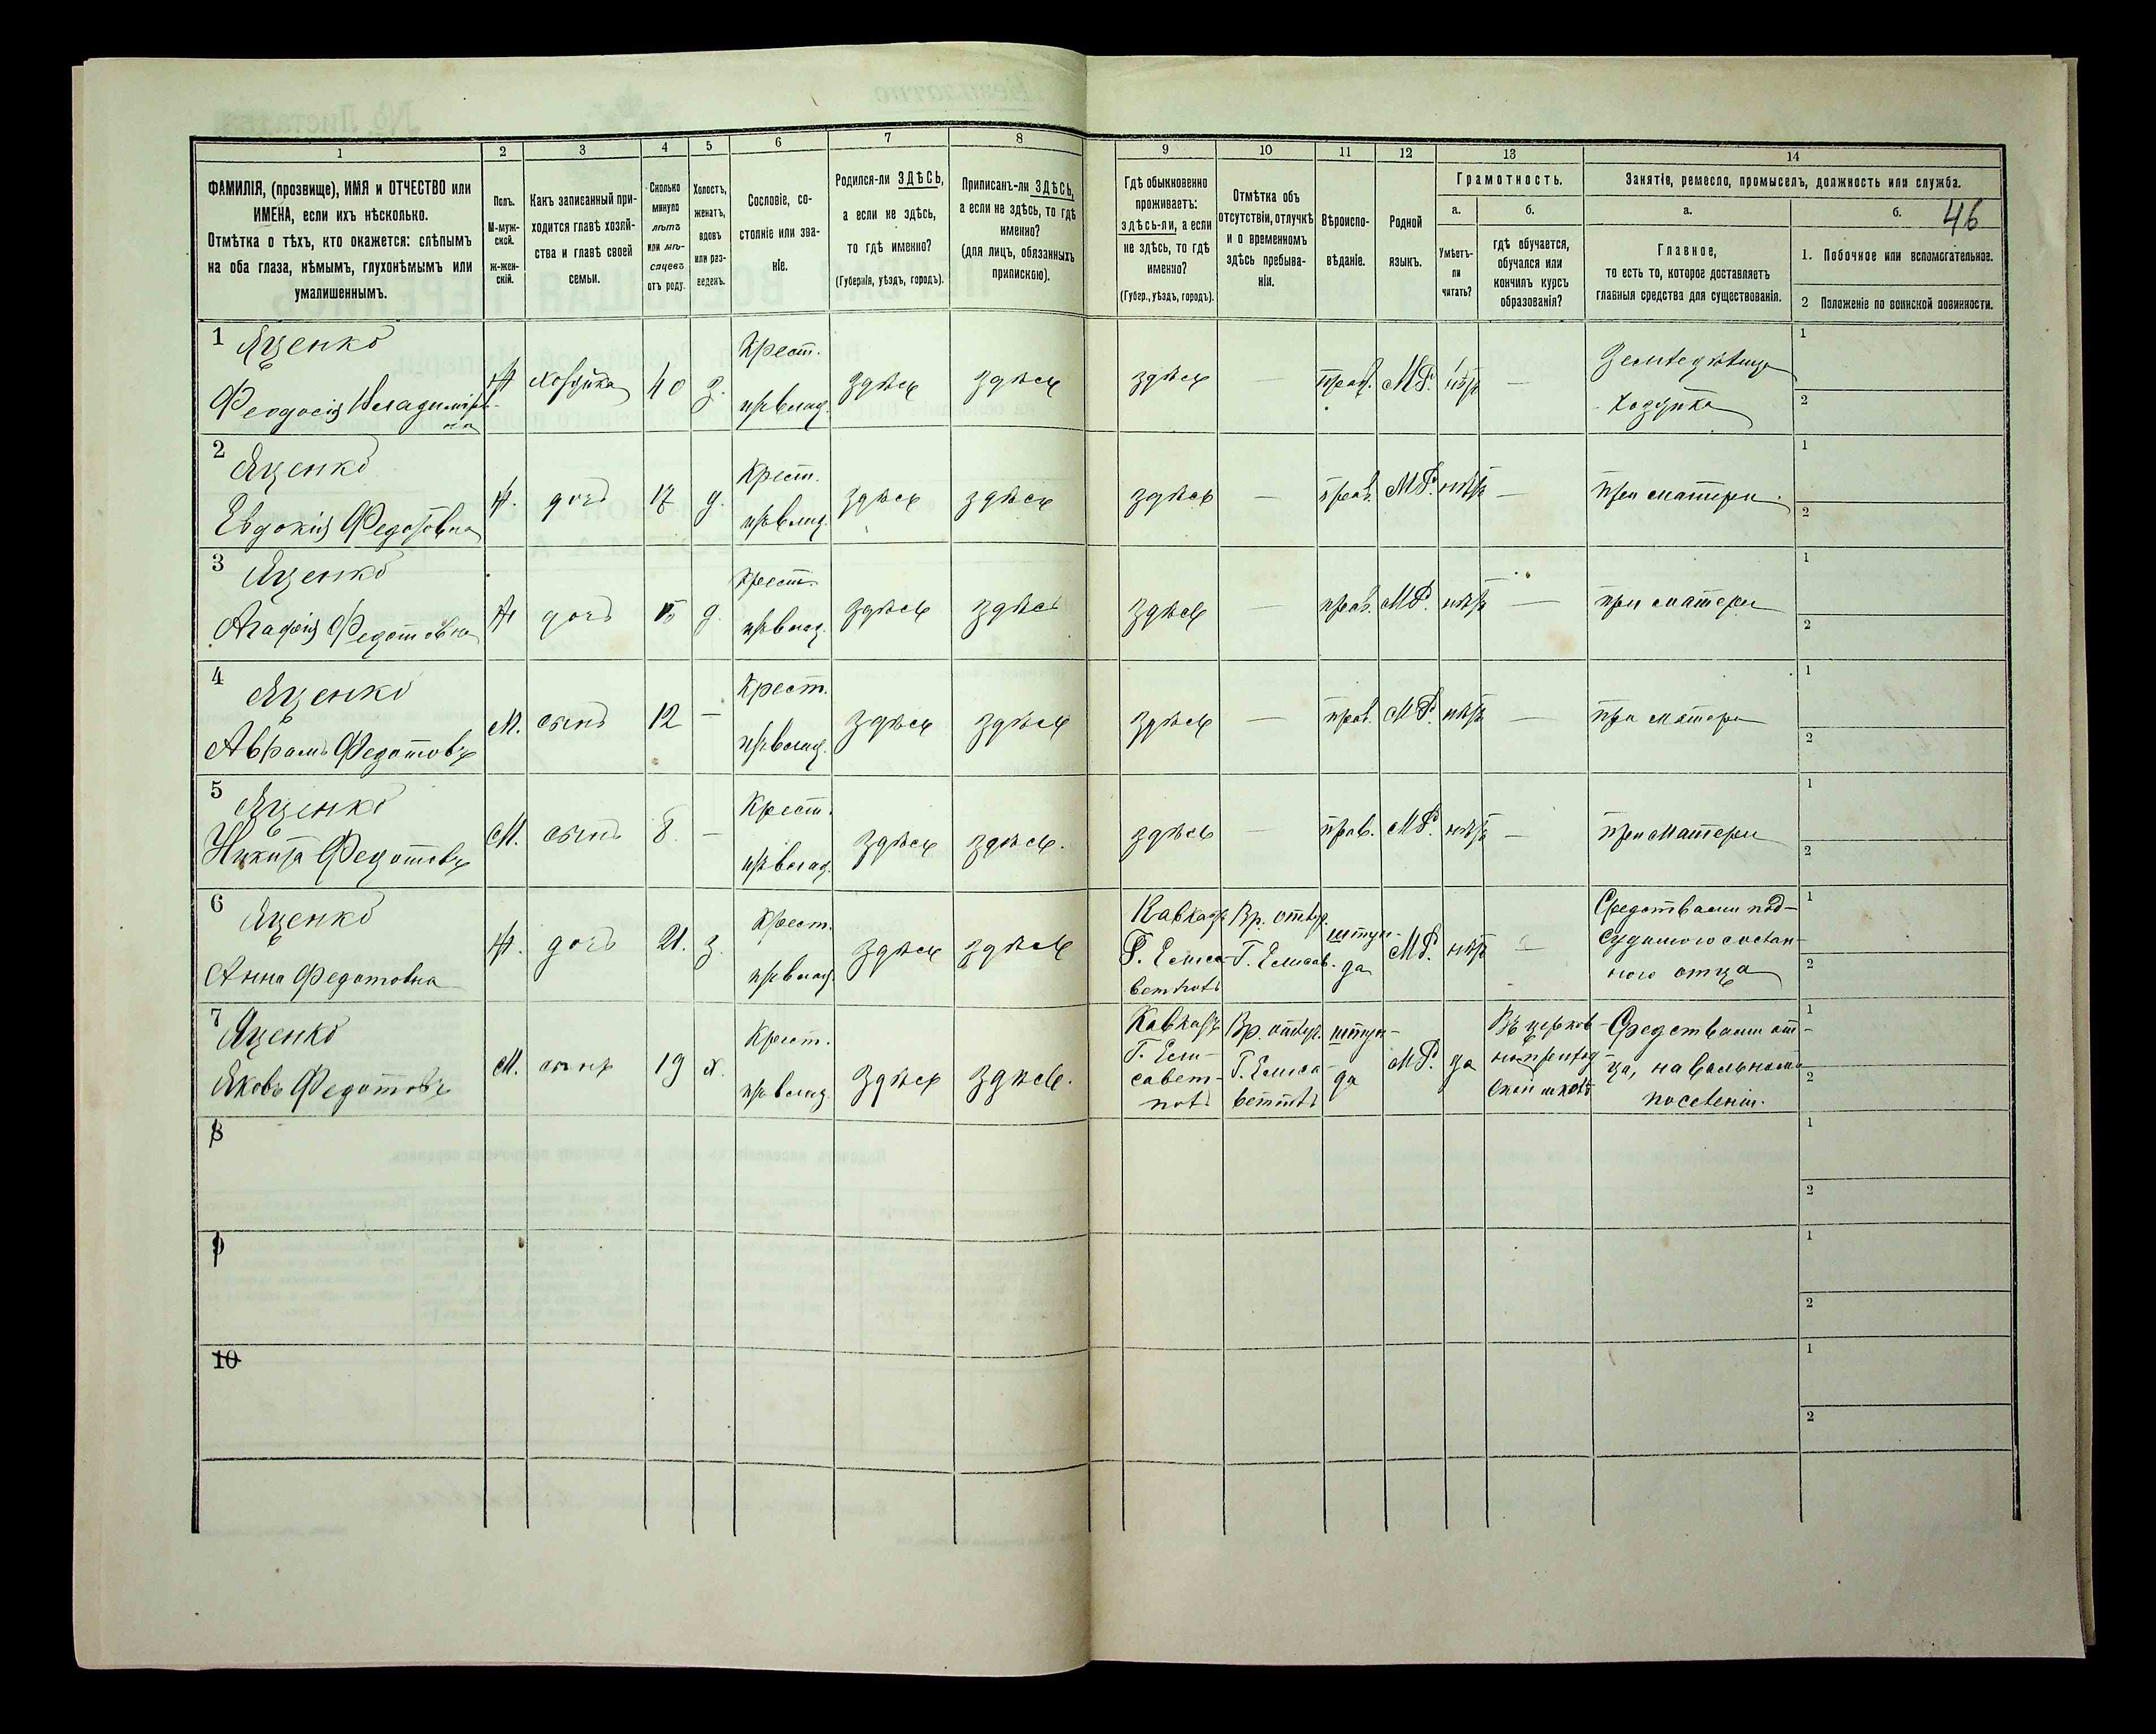 46
1 2 3 4 5 6 7 8 9 10 11 12 13 14
ФАМИЛІЯ, (прозвище), ИМЯ и ОТЧЕСТВО или ИМЕНА, если ихъ нѣсколько.
Отмѣтка о тѣхъ, кто окажется: слѣпымъ на оба глаза, нѣмымъ, глухонѣмымъ или умалишеннымъ.
Полъ. М-мужской. Ж-женскій.
Какъ записанный приходится главѣ хозяйства и главѣ своей семьи.
Сколько минуло лѣтъ или мѣсяцевъ отъ роду.
Холостъ, женатъ, вдовъ или разведенъ.
Сословіе, состояніе или званіе.
Родился-ли ЗДѢСЬ, а если не здѣсь, то гдѣ именно?
(Губернія, уѣздъ, городъ).
Приписанъ-ли ЗДѢСЬ, а если не здѣсь, то гдѣ именно?
(для лицъ, обязанныхъ припискою).
Гдѣ обыкновенно проживаетъ: здѣсь-ли, а если не здѣсь, то гдѣ именно?
(Губер., уѣздъ, городъ).
Отмѣтка объ отсутствіи, отлучкѣ и о временномъ здѣсь пребываніи.
Вѣроисповѣданіе.
Родной языкъ.
Грамотность.
а. Умѣетъ-ли читать?
б. гдѣ обучается, обучался или кончилъ курсъ образованія?
Занятіе, ремесло, промыселъ, должность или служба.
а. Главное, то есть то, которое доставляетъ главныя средства для существованія.
б. 1. Побочное или вспомогательное.
2 Положеніе по воинской повинности.
1 Яценко Ж хозяйка 40 з. Крест. здѣсь здѣсь здѣсь — прав. М.Р. нѣтъ — 1
Феодосія хозяйка 2
2 Яценко Ж. дочь 17 д. Крест. здѣсь здѣсь здѣсь — прав. М.Р. нѣтъ — при матери. 1
Евдокія Федотовна 2
3 Яценко Ж дочь 15 д. Крест. здѣсь здѣсь здѣсь — прав. М.Р. нѣтъ — при матери 1
Агафія Федотовна 2
4 Яценко М. сынъ 12 — Крест. здѣсь здѣсь здѣсь — прав. М.Р. нѣтъ — при матери 1
Аврамъ Федотовъ 2
5 Яценко М. сынъ 8. — Крест. здѣсь здѣсь. здѣсь — прав. М.Р. нѣтъ — при матери 1
Никита Федотовъ 2
6 Яценко Ж. дочь 21. з. Крест. здѣсь здѣсь Кавказъ Вр. отлуч. штун- М.Р. нѣтъ — Средствами под- 1
Г. Елиса- Г. Елисав. да судимого сослан-
Анна Федотовна ветполь ного отца 2
7 Яценко М. сынъ 19 х. Крест. здѣсь здѣсь. Кавказъ Вр. отлуч. штун- М.Р. да Въ церков- Средствами от- 1
Г. Ели- Г. Елиса- да но приход ца, на вольномъ
Яковъ Федотовъ савет- ской школѣ поселеніи. 2
поль
8 1
2
9 1
2
10 1
2